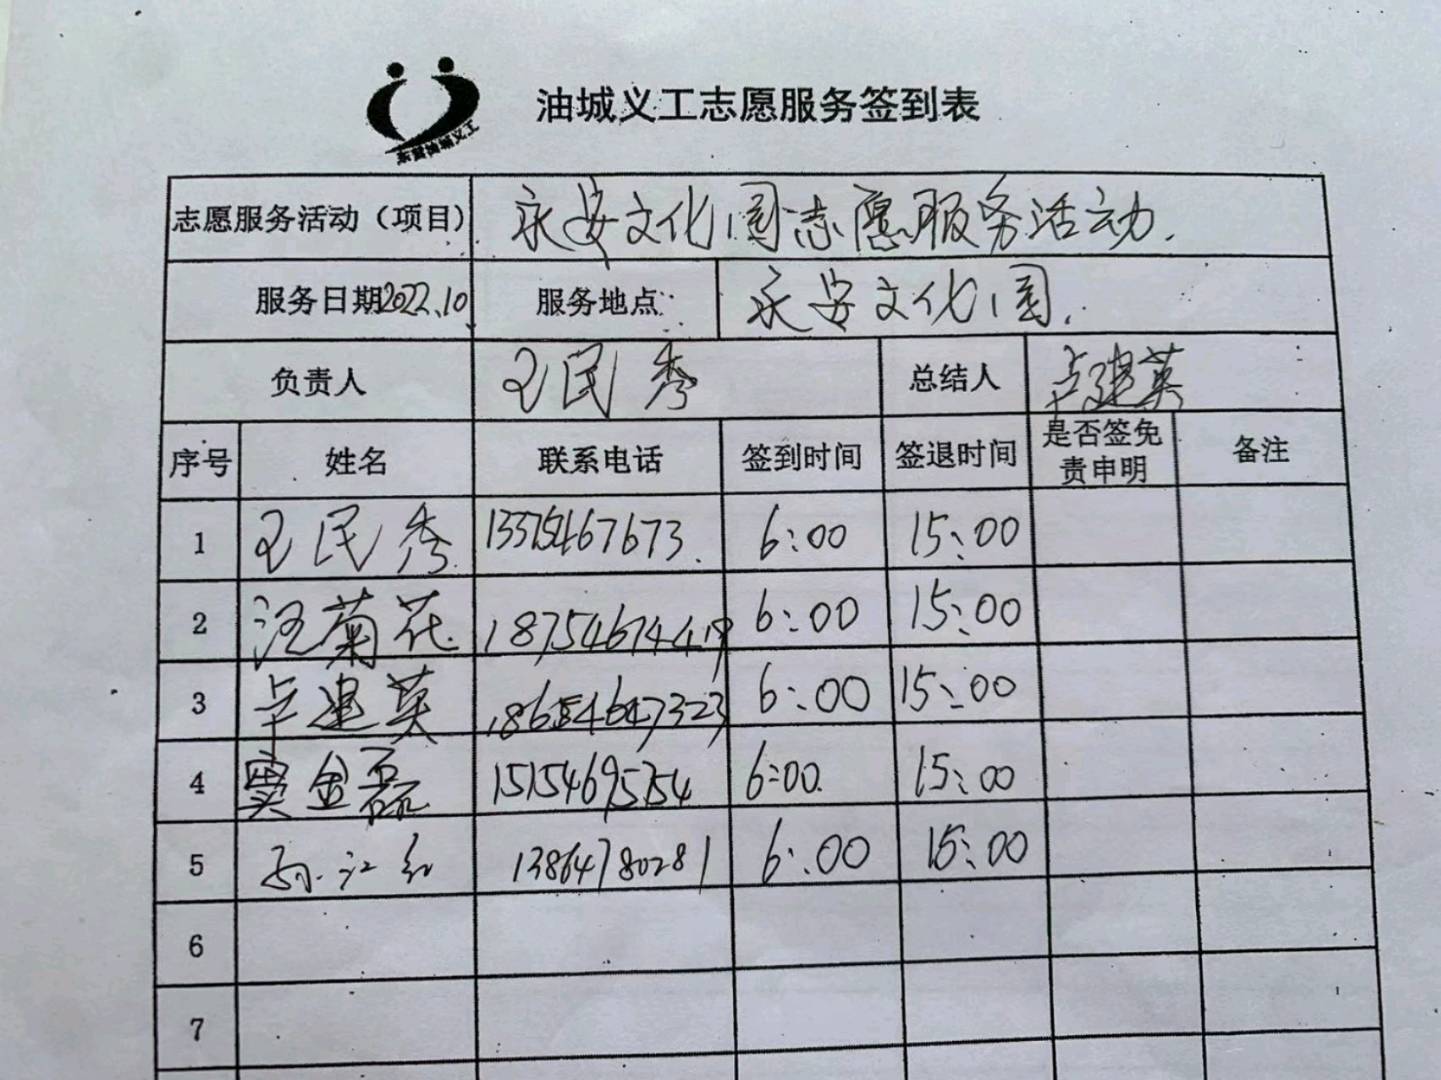 东营油城义工
油城义工志愿服务签到表
志愿服务活动（项目） 永安文化园志愿服务活动.
服务日期2022.10 服务地点 永安文化园.
负责人 王民秀 总结人 卢建英
序号 姓名 联系电话 签到时间 签退时间 是否签免责申明 备注
1 王民秀 13375467673. 6:00 15:00
2 汪菊花 18754674419 6:00 15:00
3 卢建英 6:00 15:00
4 窦金磊 15154695754 6:00. 15:00
5 孙江红 13864780281 6:00 15:00
6
7